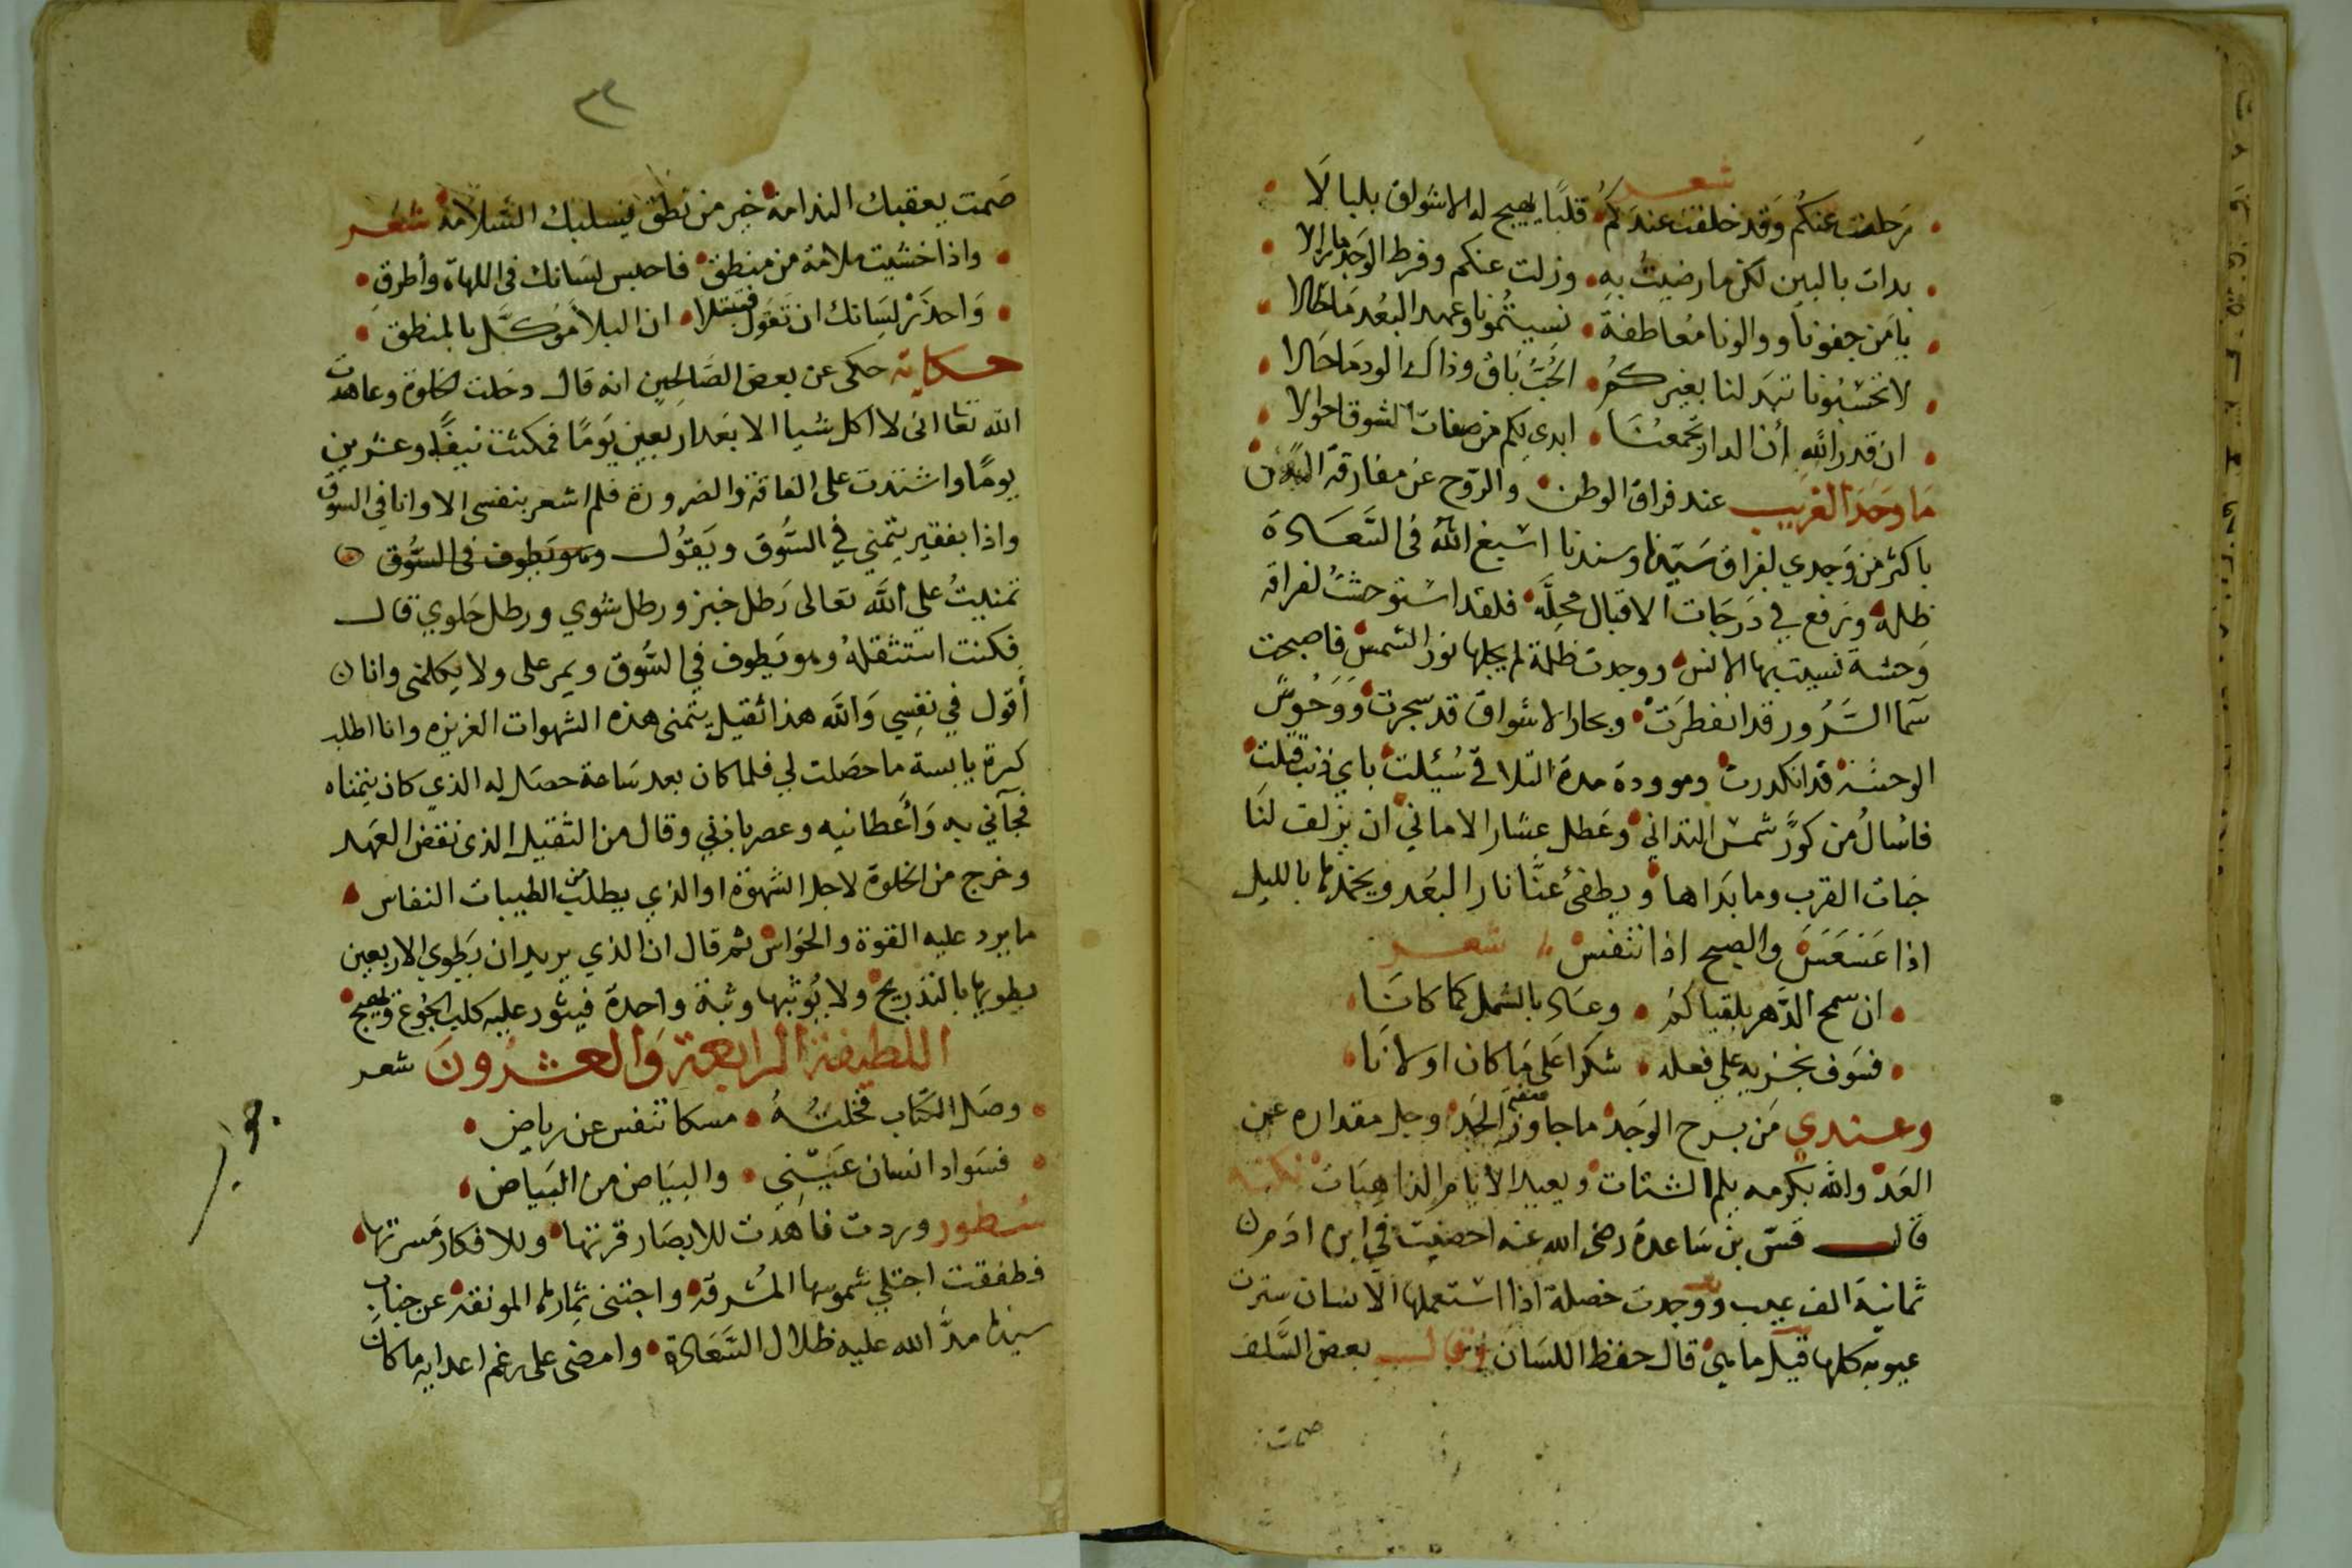 شعر
رحلت عنكم وقد خلفت عندكم • قلبًا يهيج له الاشواق بلبالا •
بدات بالبين لكن ما رضيت به • وزلت عنكم وفرط الوجد ما زالا •
يا من جفونا ووالونا معاطفة • نسيتمونا وعهد البعد ما طالا •
لا تحسبونا تبدلنا بغيركم • الحب باق وذاك الود ما حالا •
ان قدر الله أن الدار تجمعنا • ابدى لكم من صفات الشوق احوالا •
ما وجد الغريب عند فراق الوطن • والروح عن مفارقة البدن
باكثر من وجدي لفراق سيدنا وسندنا اسبغ الله في السعادة
ظله ورفع في درجات الاقبال محله • فلقد استوحشت لفراقه
وحشة نسيت بها الانس • ووجدت ظلمة لم يجلها نور الشمس فاصبحت
سما السرور قد انفطرت • وبحار الاشواق قد سجرت ووحوش
الوحشة قد انكدرت • وموودة مدة التلاقي سئيلت باي ذنب قتلت
فاسال من كور شمس التداني وعطل عشار الاماني ان يزلف لنا
جنات القرب وما بداها • ويطفئ عنا نار البعد ويخمدها بالليل
اذا عسعس والصبح اذا تنفس شعر
• ان سمح الدهر بلقياكم • وعاد بالشمل كما كانا
• فسوف نجزيه على فعله • شكرا على ما كان اولانا
وعندي من برح الوجد ما جاوز الحد وجل مقداره عن
العد والله بكرمه يلم الشتات • ويعيد الايام الذاهبات نكتة
قال قس بن ساعدة رضى الله عنه احصيت في ابن ادم
ثمانية الف عيب ووجدت خصلة اذا استعملها الانسان سترت
عيوبه كلها قيل ما هي قال حفظ اللسان وقال بعض السلف
صمت
٣٢
صمت يعقبك الندامة خير من نطق يسلبك السلامة شعر
• واذا خشيت ملامة من منطق • فاحبس لسانك في اللهاة وأطرق •
• واحذر لسانك ان تقول فتبتلا • ان البلا موكل بالمنطق •
حكاية حكى عن بعض الصالحين انه قال دخلت الخلوة وعاهدت
الله تعا انى لا اكل شيا الا بعد اربعين يومًا فمكثت نيفًا وعشرين
يومًا واشتدت على الفاقة والضرورة فلم اشعر بنفسى الا وانا في السوق
واذا بفقير يتمني في السوق ويقول وهو يطوف في السوق
تمنيت على الله تعالى رطل خبز ورطل شوي ورطل حلوي قال
فكنت استثقله وهو يطوف في السوق ويمر على ولا يكلمنى وانا
أقول في نفسي والله هذا ثقيل يتمنى هذه الشهوات الغزيزه وانا اطلب
كسرة يابسة ما حصلت لي فلما كان بعد ساعة حصل له الذي كان يتمناه
فجآني به وأعطانيه وعصر باذني وقال من الثقيل الذى نقض العهد
وخرج من الخلوة لاجل الشهوة او الذي يطلب من الطيبات النفاس •
ما يرد عليه القوة والحواس ثم قال ان الذي يريد ان يطوي الاربعين
يطويها بالتدريج ولا يوثبها وثبة واحدة فيثور عليه كلب الجوع ويهيج
اللطيفة الرابعة والعشرون شعر
• وصل الكتاب فخلته • مسكا تنفس عن رياض •
• فسواد انسان عيني • والبياض من البياض
سطور وردت فاهدت للابصار قرتها • وللافكار مسرتها •
فطفقت اجتلي شموسها المشرقة واجتنى ثمارها المونقة عن جناب
سيدنا مد الله عليه ظلال السعادة • وامضى على رغم اعدايه ما كان